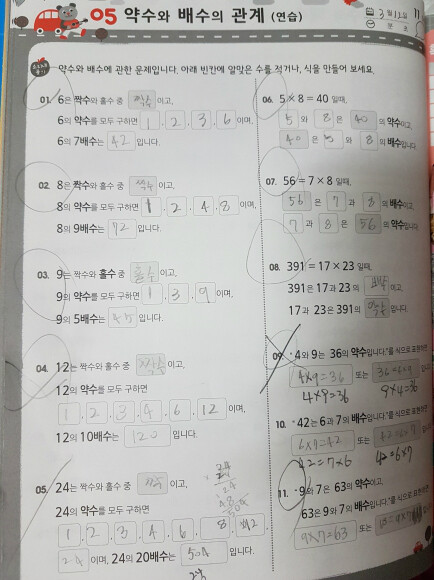 05 약수와 배수의 관계 (연습)
3월 12일
약수와 배수에 관한 문제입니다. 아래 빈칸에 알맞은 수를 적거나, 식을 만들어 보세요.
01. 6은 짝수와 홀수 중 짝수 이고,
6의 약수를 모두 구하면 1, 2, 3, 6 이며,
6의 7배수는 42 입니다.
02. 8은 짝수와 홀수 중 짝수 이고,
8의 약수를 모두 구하면 1, 2, 4, 8 이며,
8의 9배수는 72 입니다.
03. 9는 짝수와 홀수 중 홀수 이고,
9의 약수를 모두 구하면 1, 3, 9 이며,
9의 5배수는 45 입니다.
04. 12는 짝수와 홀수 중 짝수 이고,
12의 약수를 모두 구하면
1, 2, 3, 4, 6, 12 이며,
12의 10배수는 120 입니다.
05. 24는 짝수와 홀수 중 짝수 이고,
24의 약수를 모두 구하면
1, 2, 3, 4, 6, 8, 12,
24 이며, 24의 20배수는 504 입니다.
06. 5 × 8 = 40 일때,
5 와 8 은 40 의 약수이고,
40 은 5 와 8 의 배수입니다.
07. 56 = 7 × 8 일때,
56 은 7 과 8 의 배수이고,
7 과 8 은 56 의 약수입니다.
08. 391 = 17 × 23 일때,
391은 17과 23의 배수 이고,
17과 23은 391의 약수 입니다.
09. "4와 9는 36의 약수입니다."를 식으로 표현하면
4×9=36 또는 36=4×9
4×9=36 9×4=36
10. "42는 6과 7의 배수입니다."를 식으로 표현하면
6×7=42 또는 42=6×7
42=7×6 42=6×7
11. "9와 7은 63의 약수이고,
63은 9와 7의 배수입니다."를 식으로 표현하면
9×7=63 또는 63=9×7